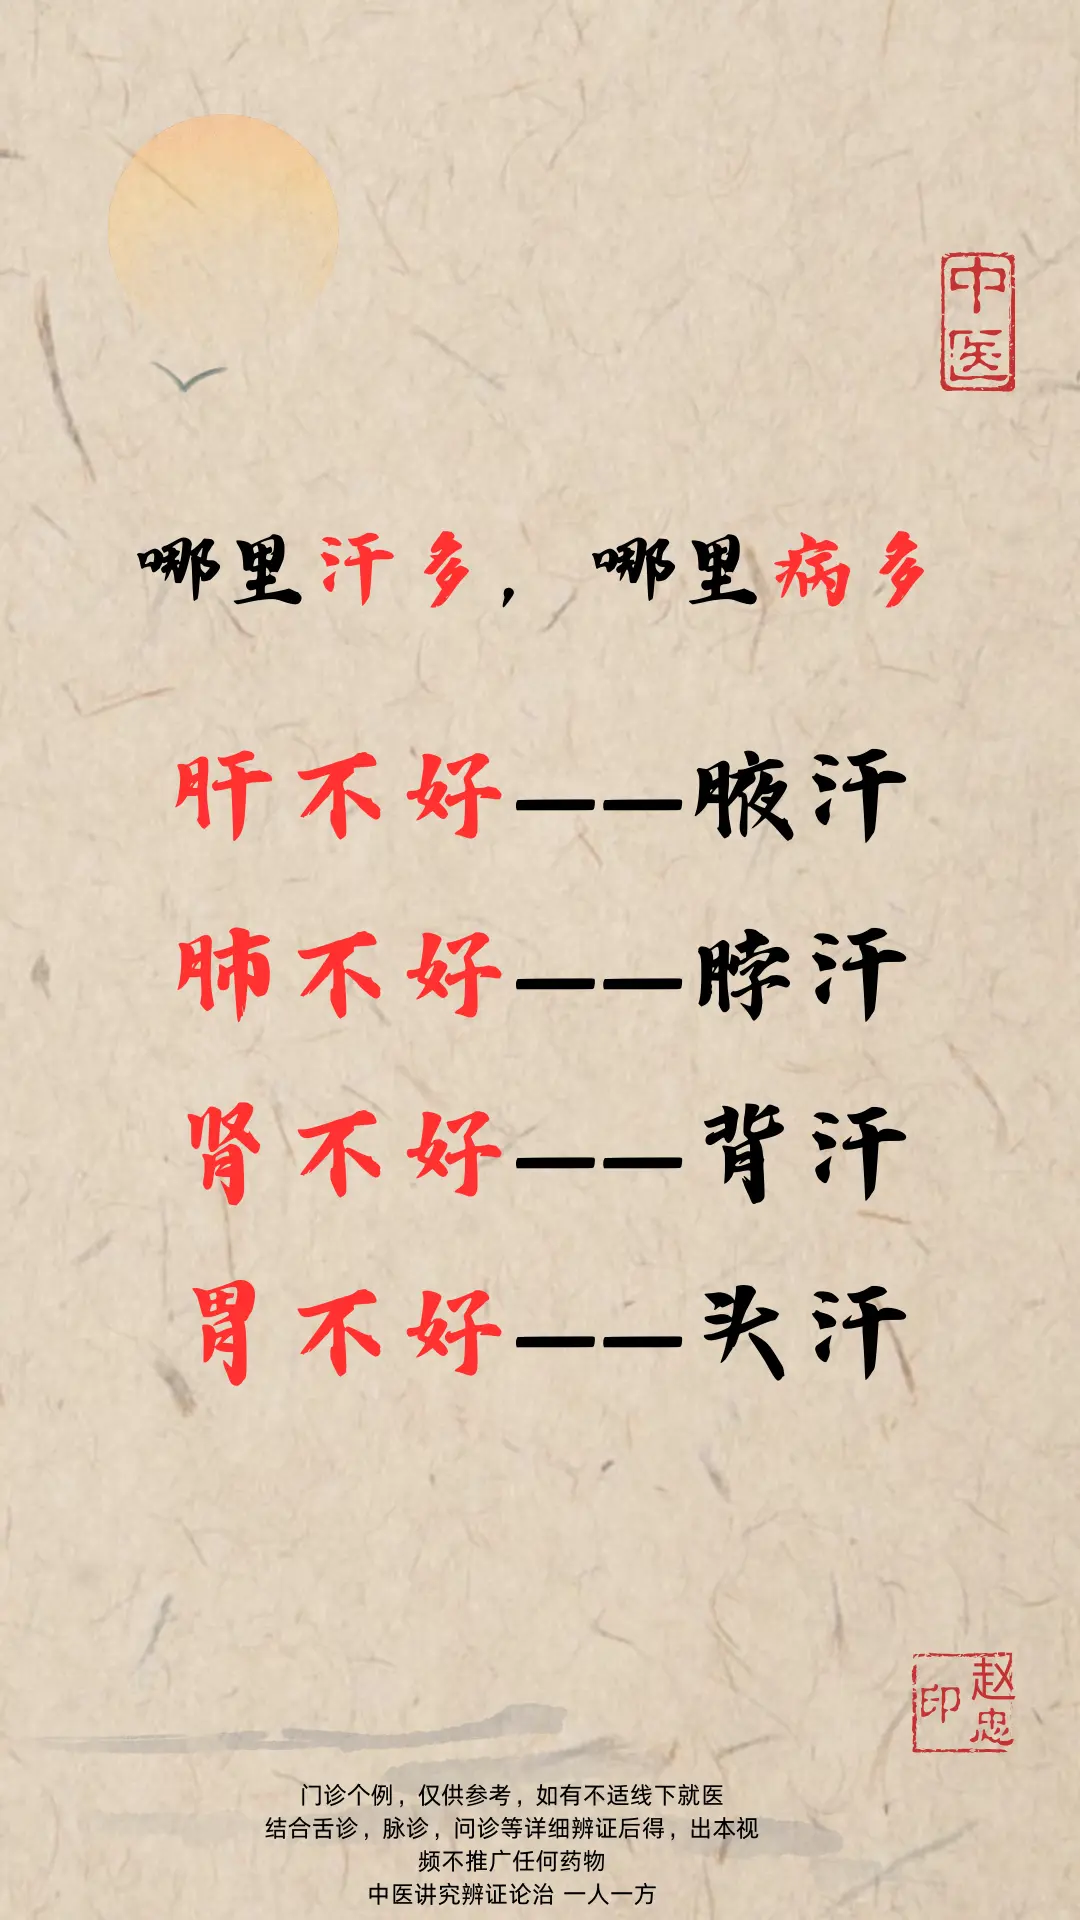 中医
哪里汗多，哪里病多
肝不好——腋汗
肺不好——脖汗
肾不好——背汗
胃不好——头汗
赵忠印
门诊个例，仅供参考，如有不适线下就医
结合舌诊，脉诊，问诊等详细辨证后得，出本视
频不推广任何药物
中医讲究辨证论治 一人一方